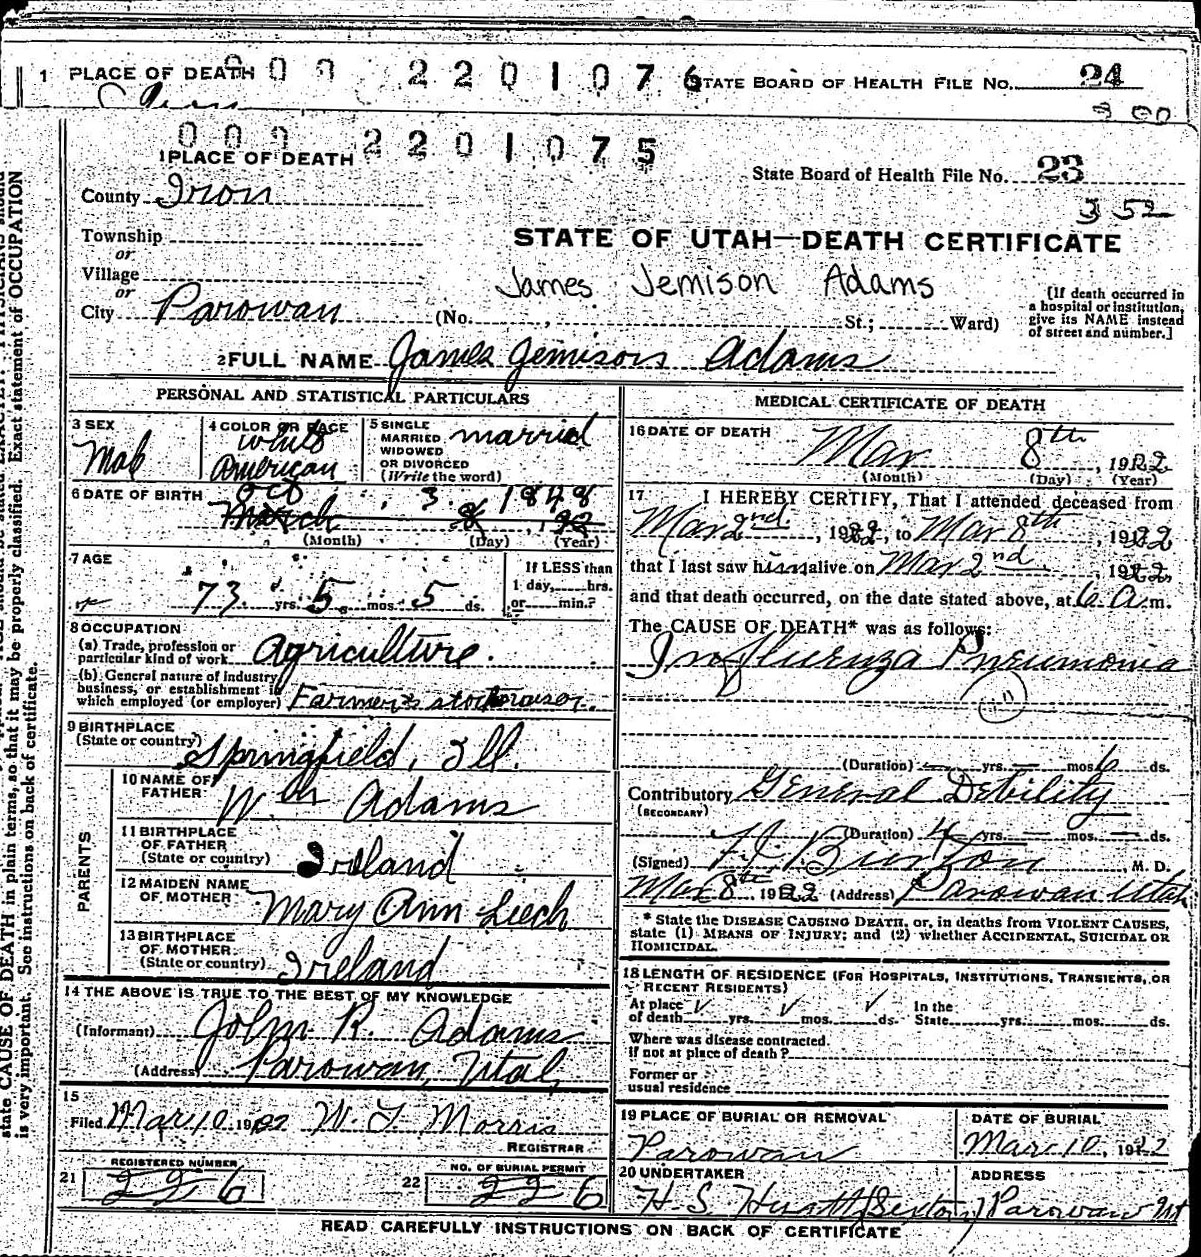 1 PLACE OF DEATH 0 0 9 2 2 0 1 0 7 6 STATE BOARD OF HEALTH FILE NO. 24
3 00
0 0 9 2 2 0 1 0 7 5
1 PLACE OF DEATH
State Board of Health File No. 23
County Iron
352
Township
STATE OF UTAH—DEATH CERTIFICATE
or
Village
James Jemison Adams
or
City Parowan (No. , St.; Ward)
[If death occurred in
a hospital or institution,
give its NAME instead
of street and number.]
2 FULL NAME James Jemison Adams
PERSONAL AND STATISTICAL PARTICULARS
3 SEX
Male
4 COLOR OR RACE
white
American
5 SINGLE
MARRIED
WIDOWED
OR DIVORCED
(Write the word)
married
6 DATE OF BIRTH Oct 3 1848
March 8, 1922
(Month) (Day) (Year)
7 AGE
73 yrs. 5 mos. 5 ds.
If LESS than
1 day, hrs.
or min.?
8 OCCUPATION
(a) Trade, profession or
particular kind of work Agriculture.
(b) General nature of Industry
business, or establishment in
which employed (or employer) Farmer & stockraiser.
9 BIRTHPLACE
(State or country) Springfield, Ill.
PARENTS
10 NAME OF
FATHER Wm Adams
11 BIRTHPLACE
OF FATHER
(State or country) Ireland
12 MAIDEN NAME
OF MOTHER Mary Ann Leech
13 BIRTHPLACE
OF MOTHER
(State or country) Ireland
14 THE ABOVE IS TRUE TO THE BEST OF MY KNOWLEDGE
(Informant) John R. Adams
(Address) Parowan, Utah
15
Filed Mar 10 1922 W. Morris
REGISTRAR
21 REGISTERED NUMBER
226
22 NO. OF BURIAL PERMIT
226
MEDICAL CERTIFICATE OF DEATH
16 DATE OF DEATH
Mar 8th, 1922
(Month) (Day) (Year)
17 I HEREBY CERTIFY, That I attended deceased from
Mar 2nd, 1922, to Mar 8th, 1922
that I last saw him alive on Mar 2nd, 1922,
and that death occurred, on the date stated above, at 6 A.m.
The CAUSE OF DEATH* was as follows:
Influenza Pneumonia
(Duration) — yrs. — mos. 6 ds.
Contributory General Debility
(SECONDARY)
(Duration) 4 yrs. — mos. — ds.
(Signed) Burton, M. D.
Mar 8th 1922 (Address) Parowan Utah
* State the DISEASE CAUSING DEATH, or, in deaths from VIOLENT CAUSES,
state (1) MEANS OF INJURY; and (2) whether ACCIDENTAL, SUICIDAL OR
HOMICIDAL.
18 LENGTH OF RESIDENCE (FOR HOSPITALS, INSTITUTIONS, TRANSIENTS, OR
RECENT RESIDENTS)
At place
of death ✓ yrs. ✓ mos. ✓ ds. In the
State yrs. mos. ds.
Where was disease contracted.
If not at place of death?
Former or
usual residence
19 PLACE OF BURIAL OR REMOVAL
Parowan
DATE OF BURIAL
Mar 10, 1922
20 UNDERTAKER
H. S. (Sexton)
ADDRESS
Parowan Ut
READ CAREFULLY INSTRUCTIONS ON BACK OF CERTIFICATE
state CAUSE OF DEATH in plain terms, so that it may be properly classified. Exact statement of OCCUPATION
is very important. See instructions on back of certificate.